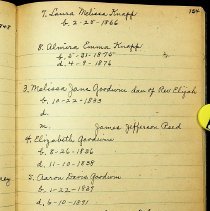 164
7. Laura Melissa Knapp
b. 2-25-1866
8. Almira Emma Knapp
b. 5-31-1875
d. 4-9-1876
3. Melissa Jane Goodwin dau of Rev Elijah
b. 10-22-1833
d.
m. James Jefferson Reed
4. Elizabeth Goodwin
b. 8-26-1836
d. 11-10-1838
5. Aaron Davis Goodwin
b. 1-22-1839
d. 6-10-1891